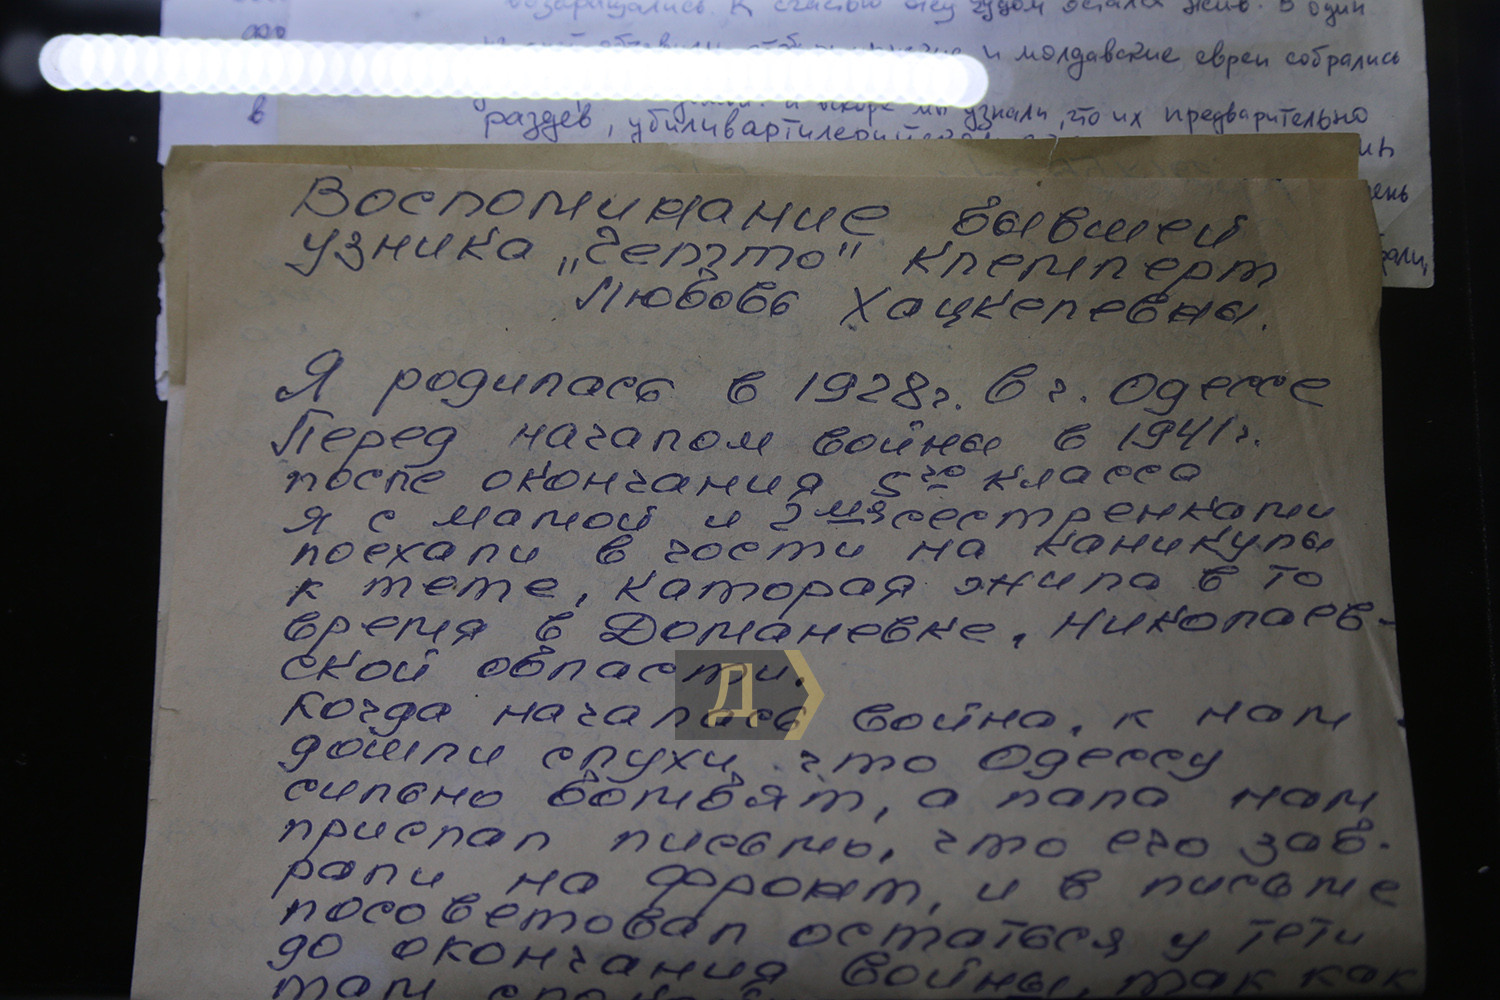 возвращались. К счастью
жив. в один
и молдавские евреи собрались
в
узнали, что их предварительно
раздев, убили в
ень
Воспоминание бывшей
узника „гетто" Клемперт
Любовь Хацкелевны.
Я родилась в 1928г. в г. Одессе
Перед началом войны в 1941г.
после окончания 5го класса
я с мамой и 2мя сестренками
поехали в гости на каникулы
к тете, каторая жила в то
время в Доманевке, Николаев-
ской области.
Когда началась война, к нам
дошли слухи что Одессу
сильно бомбят, а папа нам
прислал письмо, что его заб-
рали на фронт, и в письме
посоветовал остаться у тети
до окончания войны, так как
там
Д